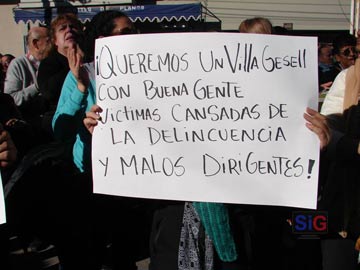 PLANOS
¡QUEREMOS UN VILLA GESELL
CON BUENA GENTE
VICTIMAS CANSADAS DE
LA DELINCUENCIA
Y MALOS DIRIGENTES!
SiG